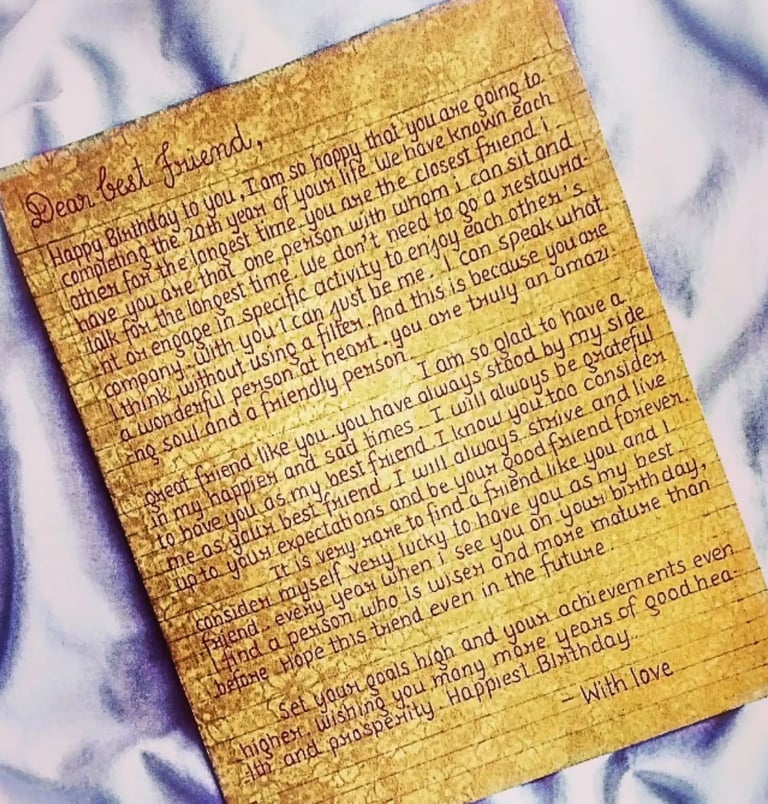 Dear best friend,
Happy Birthday to you, I am so happy that you are going to
completing the 20th year of your life. We have known each
other for the longest time you are the closest friend I
have you are that one person with whom i can sit and
talk for the longest time. We don't need to go a restaura-
nt or engage in specific activity to enjoy each other's
company. With you I can just be me. I can speak what
I think without using a filter. And this is because you are
a wonderful person at heart. you are truly an amazi
-ng soul and a friendly person.
I am so glad to have a
great friend like you. you have always stood by my side
in my happier and sad times. I will always be grateful
to have you as my best friend. I know you too consider
me as your best friend. I will always strive and live
up to your expectations and be your good friend forever.
It is very rare to find a friend like you and I
consider myself very lucky to have you as my best
friend. every year when I see you on your birthday,
I find a person who is wiser and more mature than
before. Hope this trend even in the future.
Set your goals high and your achievements even
higher. wishing you many more years of good hea
-lth and prosperity. Happiest Birthday..
- With love